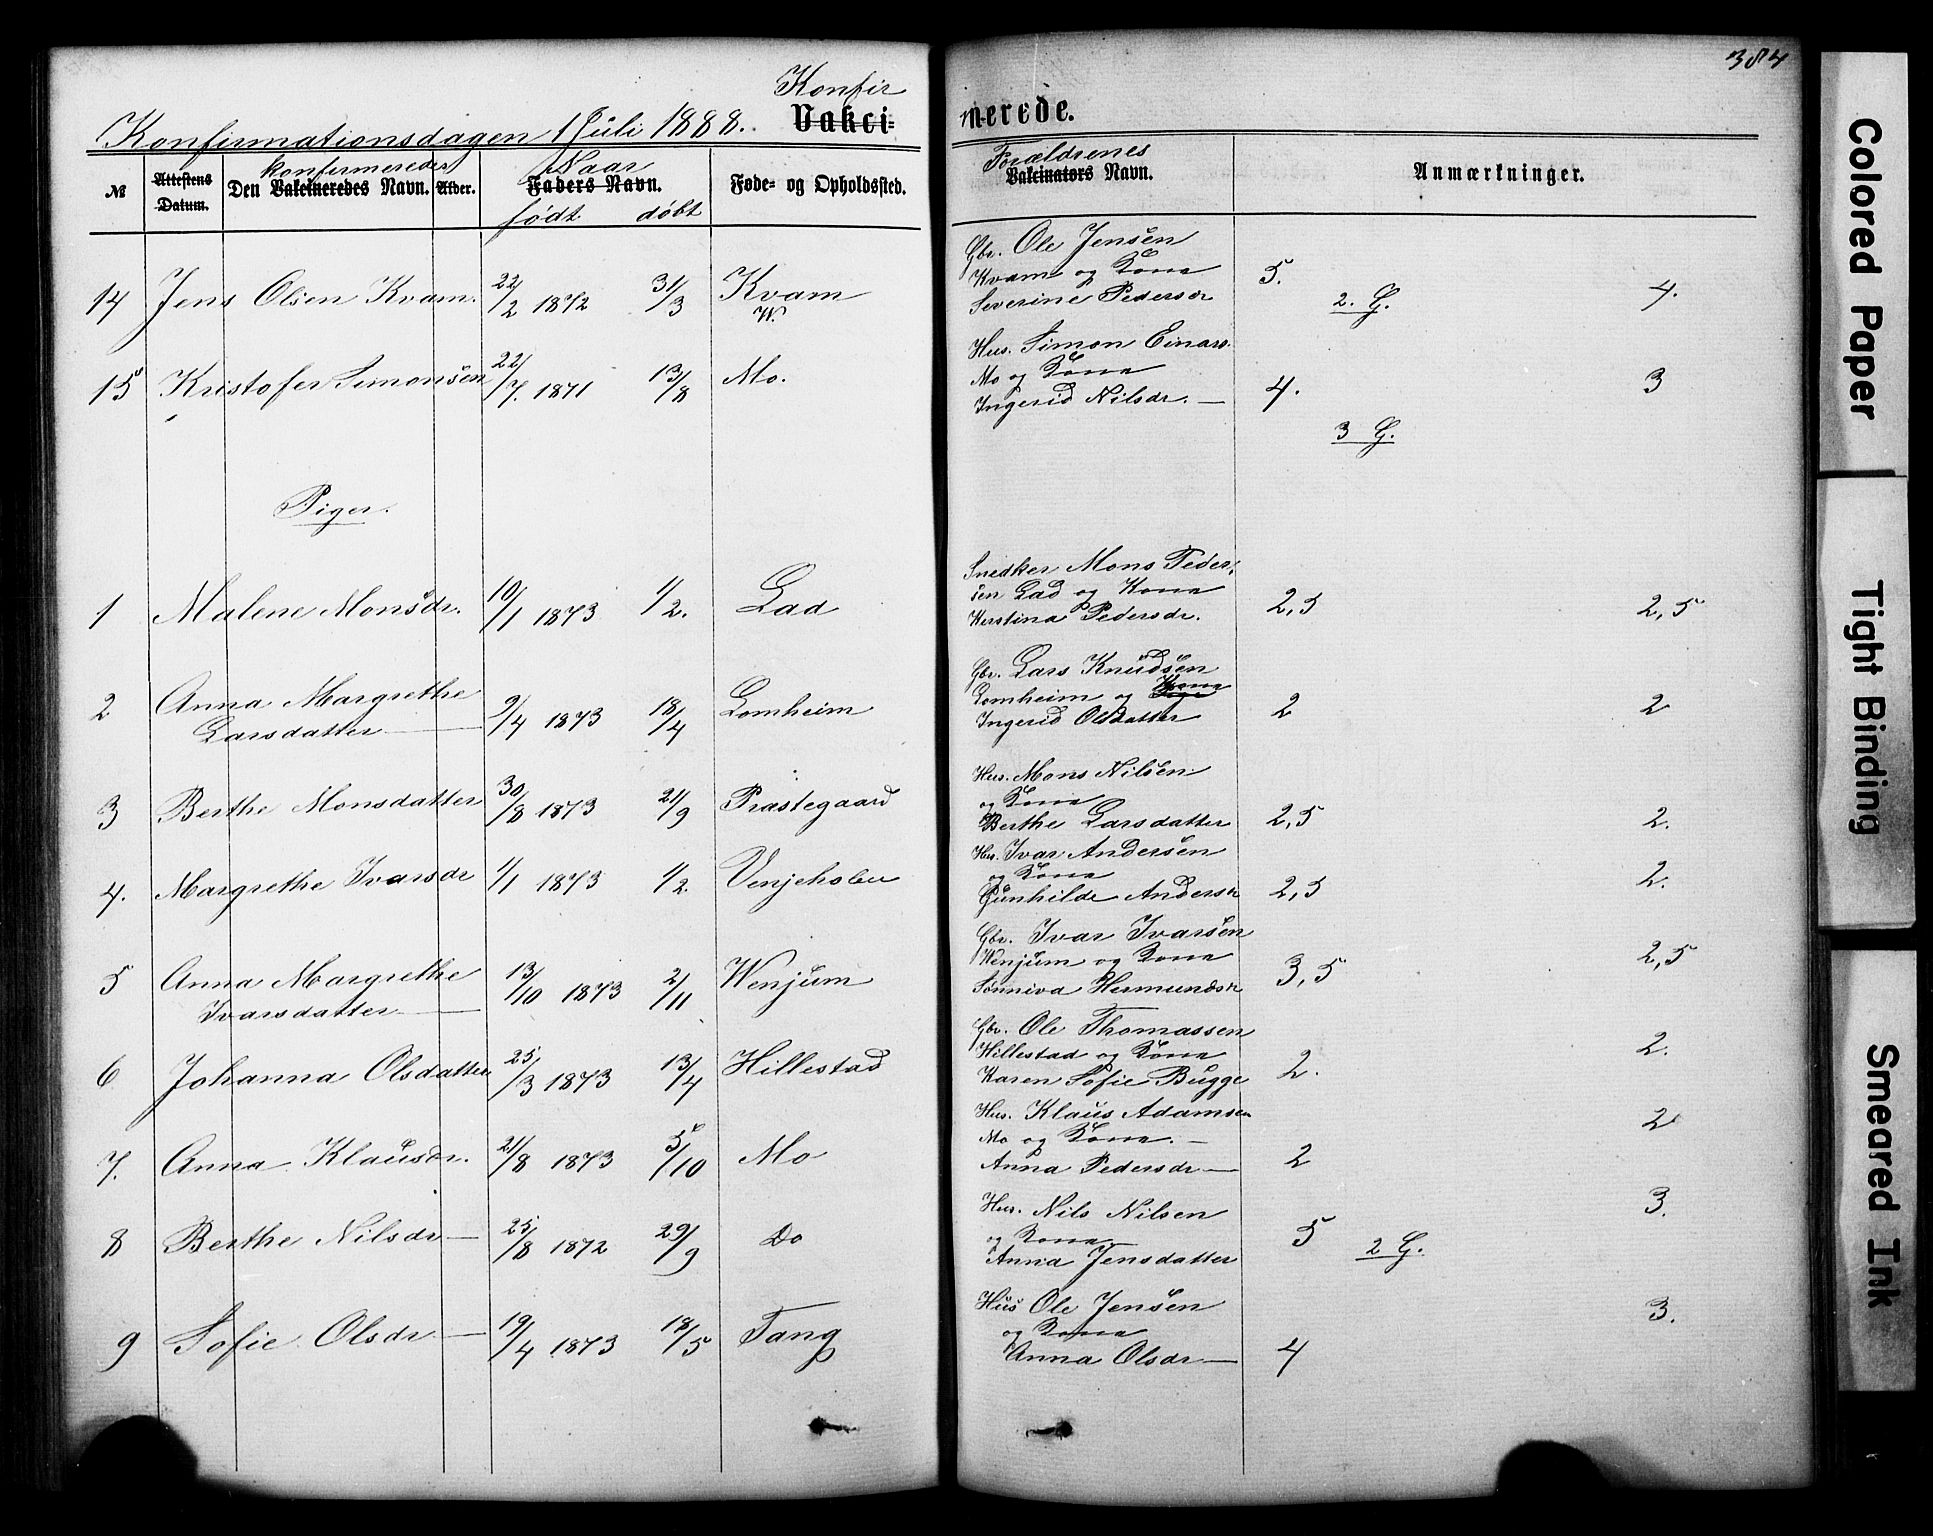 384
Konfir
Konfirmationsdagen 1 Juli 1888. Vakci= merede.
№ Attestens Datum. Den konfirmeredes Vakcineredes Navn. Alder. Naar Faders Navn. født døbt Føde= og Opholdssted. Forældrenes Vakcinators Navn. Anmærkninger.
Gbr. Ole Jensen
14 Jens Olsen Kvam. 22/2 1872 31/3 Kvam Kvam og Kone 5. 4.
W. Severine Pedersdr 2. G.
Hus. Simon Einars.
15 Kristofer Simonsen 22/7. 1871 13/8 Mo. Mo og Kone 3
Ingerid Nilsdr. — 4.
3 G.
Piger.
Snedker Mons Peder=
1 Malene Monsdr. 10/1 1873 1/2. Lad sen Lad og Kone 2,5 2,5
Kerstina Pedersdr.
Gbr. Lars Knudsen
2 Anna Margrethe 9/4 1873 18/4 Lomheim Lomheim og Kone 2 2
Larsdatter — Ingerid Olsdatter
Hus. Mons Nilsen
3 Berthe Monsdatter 30/8 1873 21/9 Præstegaard og Kone
Berthe Larsdatter 2,5 2.
Hus. Ivar Andersen
4. Margrethe Ivarsdr 1/1 1873 1/2. og Kone 2.
Gunhilde Andersdr 2,5
Gbr. Ivar Ivarsen
5 Anna Margrethe 13/10 1873 2/11 Wenjum Wenjum og Kone 3,5 2,5
Ivarsdatter — Sønniva Hermundsdr
Gbr. Ole Thomassen
6 Johanna Olsdatter 25/3 1873 13/4 Hillestad Hillestad og Kone 2. 2.
Karen Sofie Bugge
Hus. Klaus Adamsen
7. Anna Klausdr. 21/8 1873 5/10 Mo Mo og Kone. — 2
Anna Pedersdr — 2
Hus. Nils Nilsen
8 Berthe Nilsdr — 25/8 1872 29/9 Do og Kone 5 3.
Anna Jensdatter 2 G.
Hus Ole Jensen
9 Sofie Olsdr — 19/4 1873 18/5 Tang og Kone 3.
Anna Olsdr — 4
Colored Paper
Tight Binding
Smeared Ink